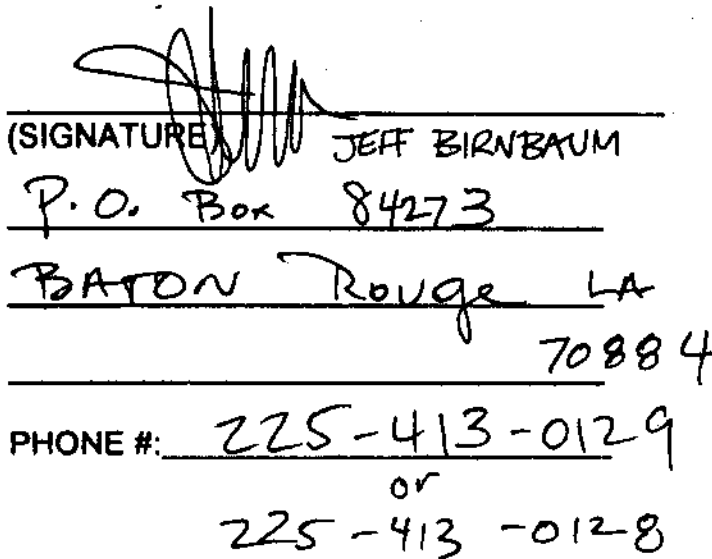 (SIGNATURE) JEFF BIRNBAUM
P.O. Box 84273
BATON Rouge LA
70884
PHONE #: 225-413-0129
or
225-413-0128